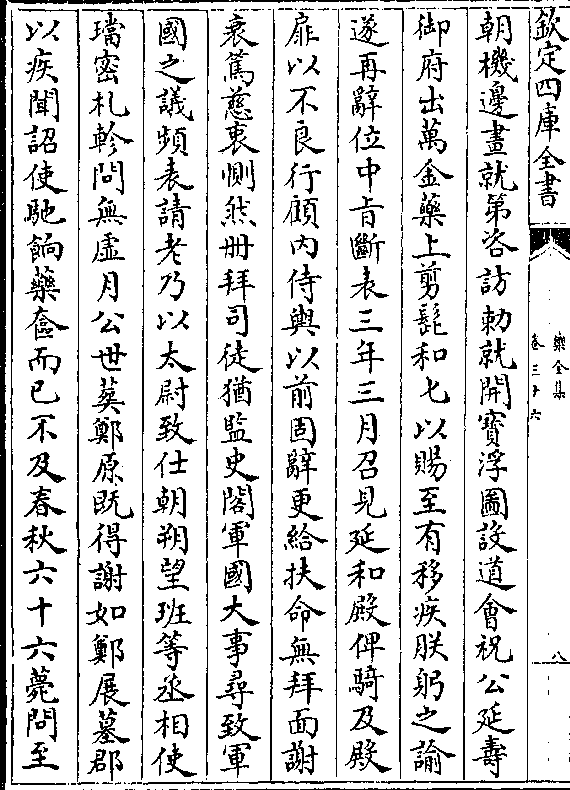 欽定四庫全書
樂全集
卷三十六
八
朝機邊畫就第咨訪勅就開寳浮圖設道會祝公延壽
御府出萬金藥上剪髭和七以賜至有移疾朕躬之諭
遂再辭位中旨斷表三年三月召見延和殿俾騎及殿
扉以不良行顧内侍輿以前固辭更給扶命無拜面謝
衰篤慈衷惻然册拜司徒猶監史閣軍國大事尋致軍
國之議頻表請老乃以太尉致仕朝朔望班等丞相使
璫宻札軫問無虚月公世葬鄭原既得謝如鄭展墓郡
以疾聞詔使馳餉藥奩而已不及春秋六十六薨問至